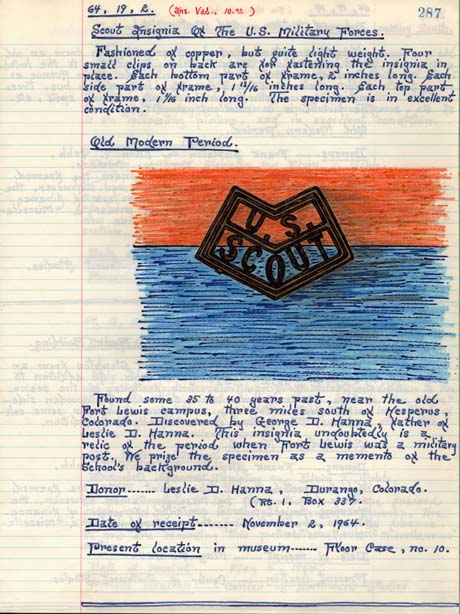 64, 19, 2. (Ins. Val., 10.00) 287
Scout Insignia Of The U.S. Military Forces.
Fashioned of copper, but quite light weight. Four
small clips on back are for fastening the insignia in
place. Each bottom part of frame, 2 inches long. Each
side part of frame, 1 1/16 inches long. Each top part
of frame, 1 9/16 inch long. The specimen is in excellent
condition.
Old Modern Period.
U.S.
SCOUT
Found some 35 to 40 years past, near the old
Fort Lewis campus, three miles south of Hesperus,
Colorado. Discovered by George D. Hanna, father of
Leslie D. Hanna. This insignia undoubtedly is a
relic of the period when Fort Lewis was a military
post. We prize the specimen as a memento of the
School's background.
Donor....... Leslie D. Hanna, Durango, Colorado.
(Rt. 1, Box 337.
Date of receipt------- November 2, 1964.
Present location in museum...... Floor Case, no. 10.